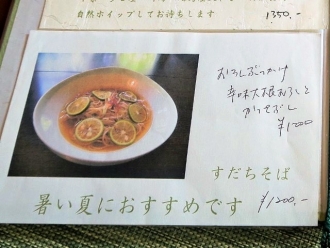 自然ホイップしてお待ちします
1350.-
おろしぶっかけ
辛味大根おろしと
かつおぶし
¥1000
すだちそば
暑い夏におすすめです
¥1200.-